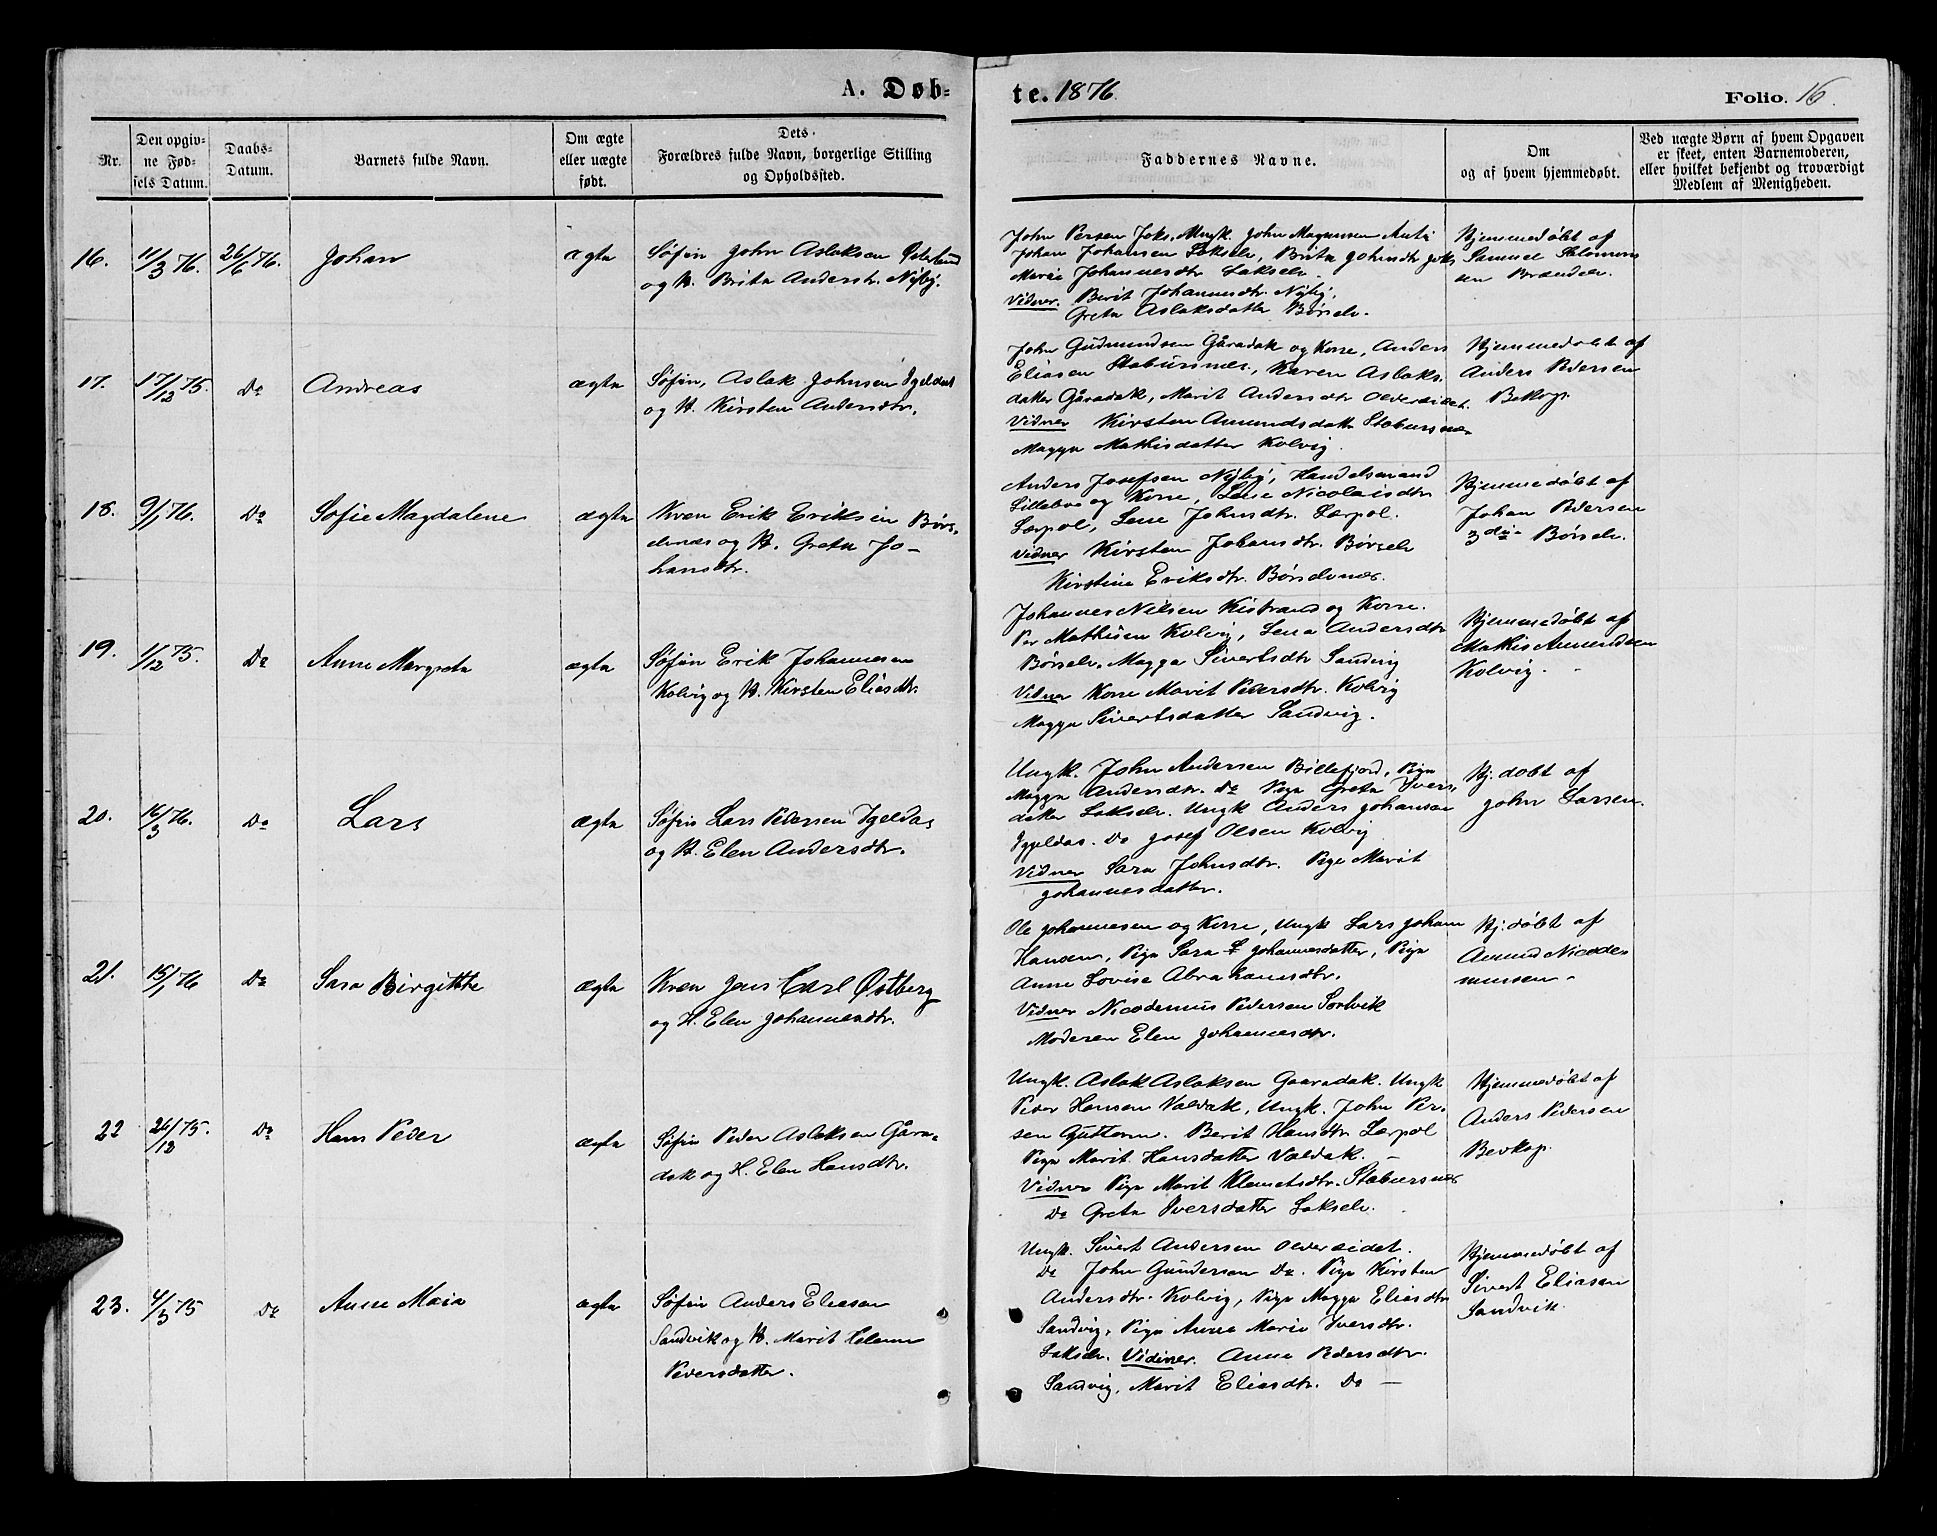 A. Døb-
te. 1876.
Folio. 16.
Nr.
Den opgiv-
ne Fød-
sels Datum.
Daabs-
Datum.
Barnets fulde Navn.
Om ægte
eller uægte
født.
Dets
Forældres fulde Navn, borgerlige Stilling
og Opholdssted.
Faddernes Navne.
Om
og af hvem hjemmedøbt.
Ved uægte Børn af hvem Opgaven
er skeet, enten Barnemoderen,
eller hvilket bekjendt og troværdigt
Medlem af Menigheden.
16.
11/3 76.
26/6 76.
Johan
ægte
Søfin John Aslaksen
og H. Brita Andersdtr. Nÿbÿ.
John Persen Joks. Ungk. John Magnusen Anti
Johan Johansen Lakselv, Brita Johnsdtr Joks
Marie Johannesdtr Lakselv.
Vidner. Berit Johannesdtr. Nÿbÿ,
Greta Aslaksdatter Børselv.
Hjemmedøbt af
Samuel Salomons
en Brændelv.
17.
17/12 75.
Do
Andreas
ægte
Søfin, Aslak Johnsen Igeldas
og H. Kirsten Andersdtr.
John Gudmundsen Gåradak og Kone, Anders
Eliasen Stabursnes, Karen Aslaks
datter Gåradak, Marit Andersdtr Oldereidet.
Vidner Kirsten Amundsdatt Stabursnes
Magga Mathisdatter Kolvig.
Hjemmedøbt af
Anders Pedersen
Bevkop.
18.
9/1 76.
Do
Sofie Magdalene
ægte
Kven Erik Eriksen Børs-
elvnes og H. Greta Jo-
hansdtr.
Anders Josefsen Nÿbÿ, Handelsmand
Lillebo og Kone, Lene Nicolaisdtr
Lærpol, Lene Johnsdtr. Lærpol.
Vidner Kirsten Johansdtr. Børselv
Kirstine Eriksdtr. Børselvnes.
Hjemmedøbt af
Johan Pedersen
3die Børselv.
19.
1/12 75.
Do
Anne Margreta
ægte
Søfin Erik Johannesen
Kolvig og H. Kirsten Eliasdtr.
Johannes Nilsen Kistrand og Kone.
Per Mathisen Kolvig, Lena Andersdtr
Børselv. Magga Sivertsdtr Sandvig
Vidner Kone Marit Pedersdtr. Kolvig
Magga Sivertsdatter Sandvig.
Hjemmedøbt af
Mathis Amundsen
Kolvig.
20.
16/3 76.
Do
Lars
ægte
Søfin Lars Pedersen Igeldas
og H. Elen Andersdtr.
Ungk. John Andersen Billefjord, Pige
Magga Andersdtr. Do Pige Greta Ivers
datter Lakselv. Ungk Anders Johansen
Igeldas. Do Josef Olsen Kolvig
Vidner Sara Johnsdtr. Pige Marit
Johannesdatter.
Hj. døbt af
John Larsen.
21.
15/1 76
Do
Sara Birgitte
ægte
Kven Jens Carl Østberg
og H. Elen Johannesdtr.
Ole Johannesen og Kone, Ungk Lars Johan
Hansen, Pige Sara Johannesdatter, Pige
Anne Lovise Abrahamsdtr.
Vidner Nicodemus Pedersen Sortvik
Moderen Elen Johannesdtr.
Hj. døbt af
Amund Nicodem
mussen.
22
26/12 75.
Do
Hans Peder
ægte
Søfin Peder Aslaksen Gåra-
dak og H. Elen Hansdtr.
Ungk. Aslak Aslaksen Gaaradak. Ungk
Peder Hansen Valdak, Ungk. John Per-
sen Guttorm. Berit Hansdtr Lærpol
Pige Marit Hansdatter Valdak.
Vidner Pige Marit Klemetsdtr. Stabursnes
Do Greta Iversdatter Lakselv.
Hjemmedøbt af
Anders Pedersen
Bevkop.
23.
4/3 75
Do
Anne Maia
ægte
Søfin Anders Eliasen
Sandvik og H. Marit Helene
Pedersdatter.
Ungk. Sivert Andersen Oldereidet.
Do John Gundersen Do. Pige Kirsten
Andersdtr. Kolvig, Pige Magga Eliasdtr
Sandvig, Pige Anne Marie Iversdtr.
Lakselv. Vidner. Anne Pedersdtr.
Sandvig, Marit Eliasdtr. Do
Hjemmedøbt af
Sivert Eliasen
Sandvik.